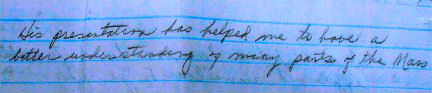 His presentation has helped me to have a
better understanding of many parts of the Mass